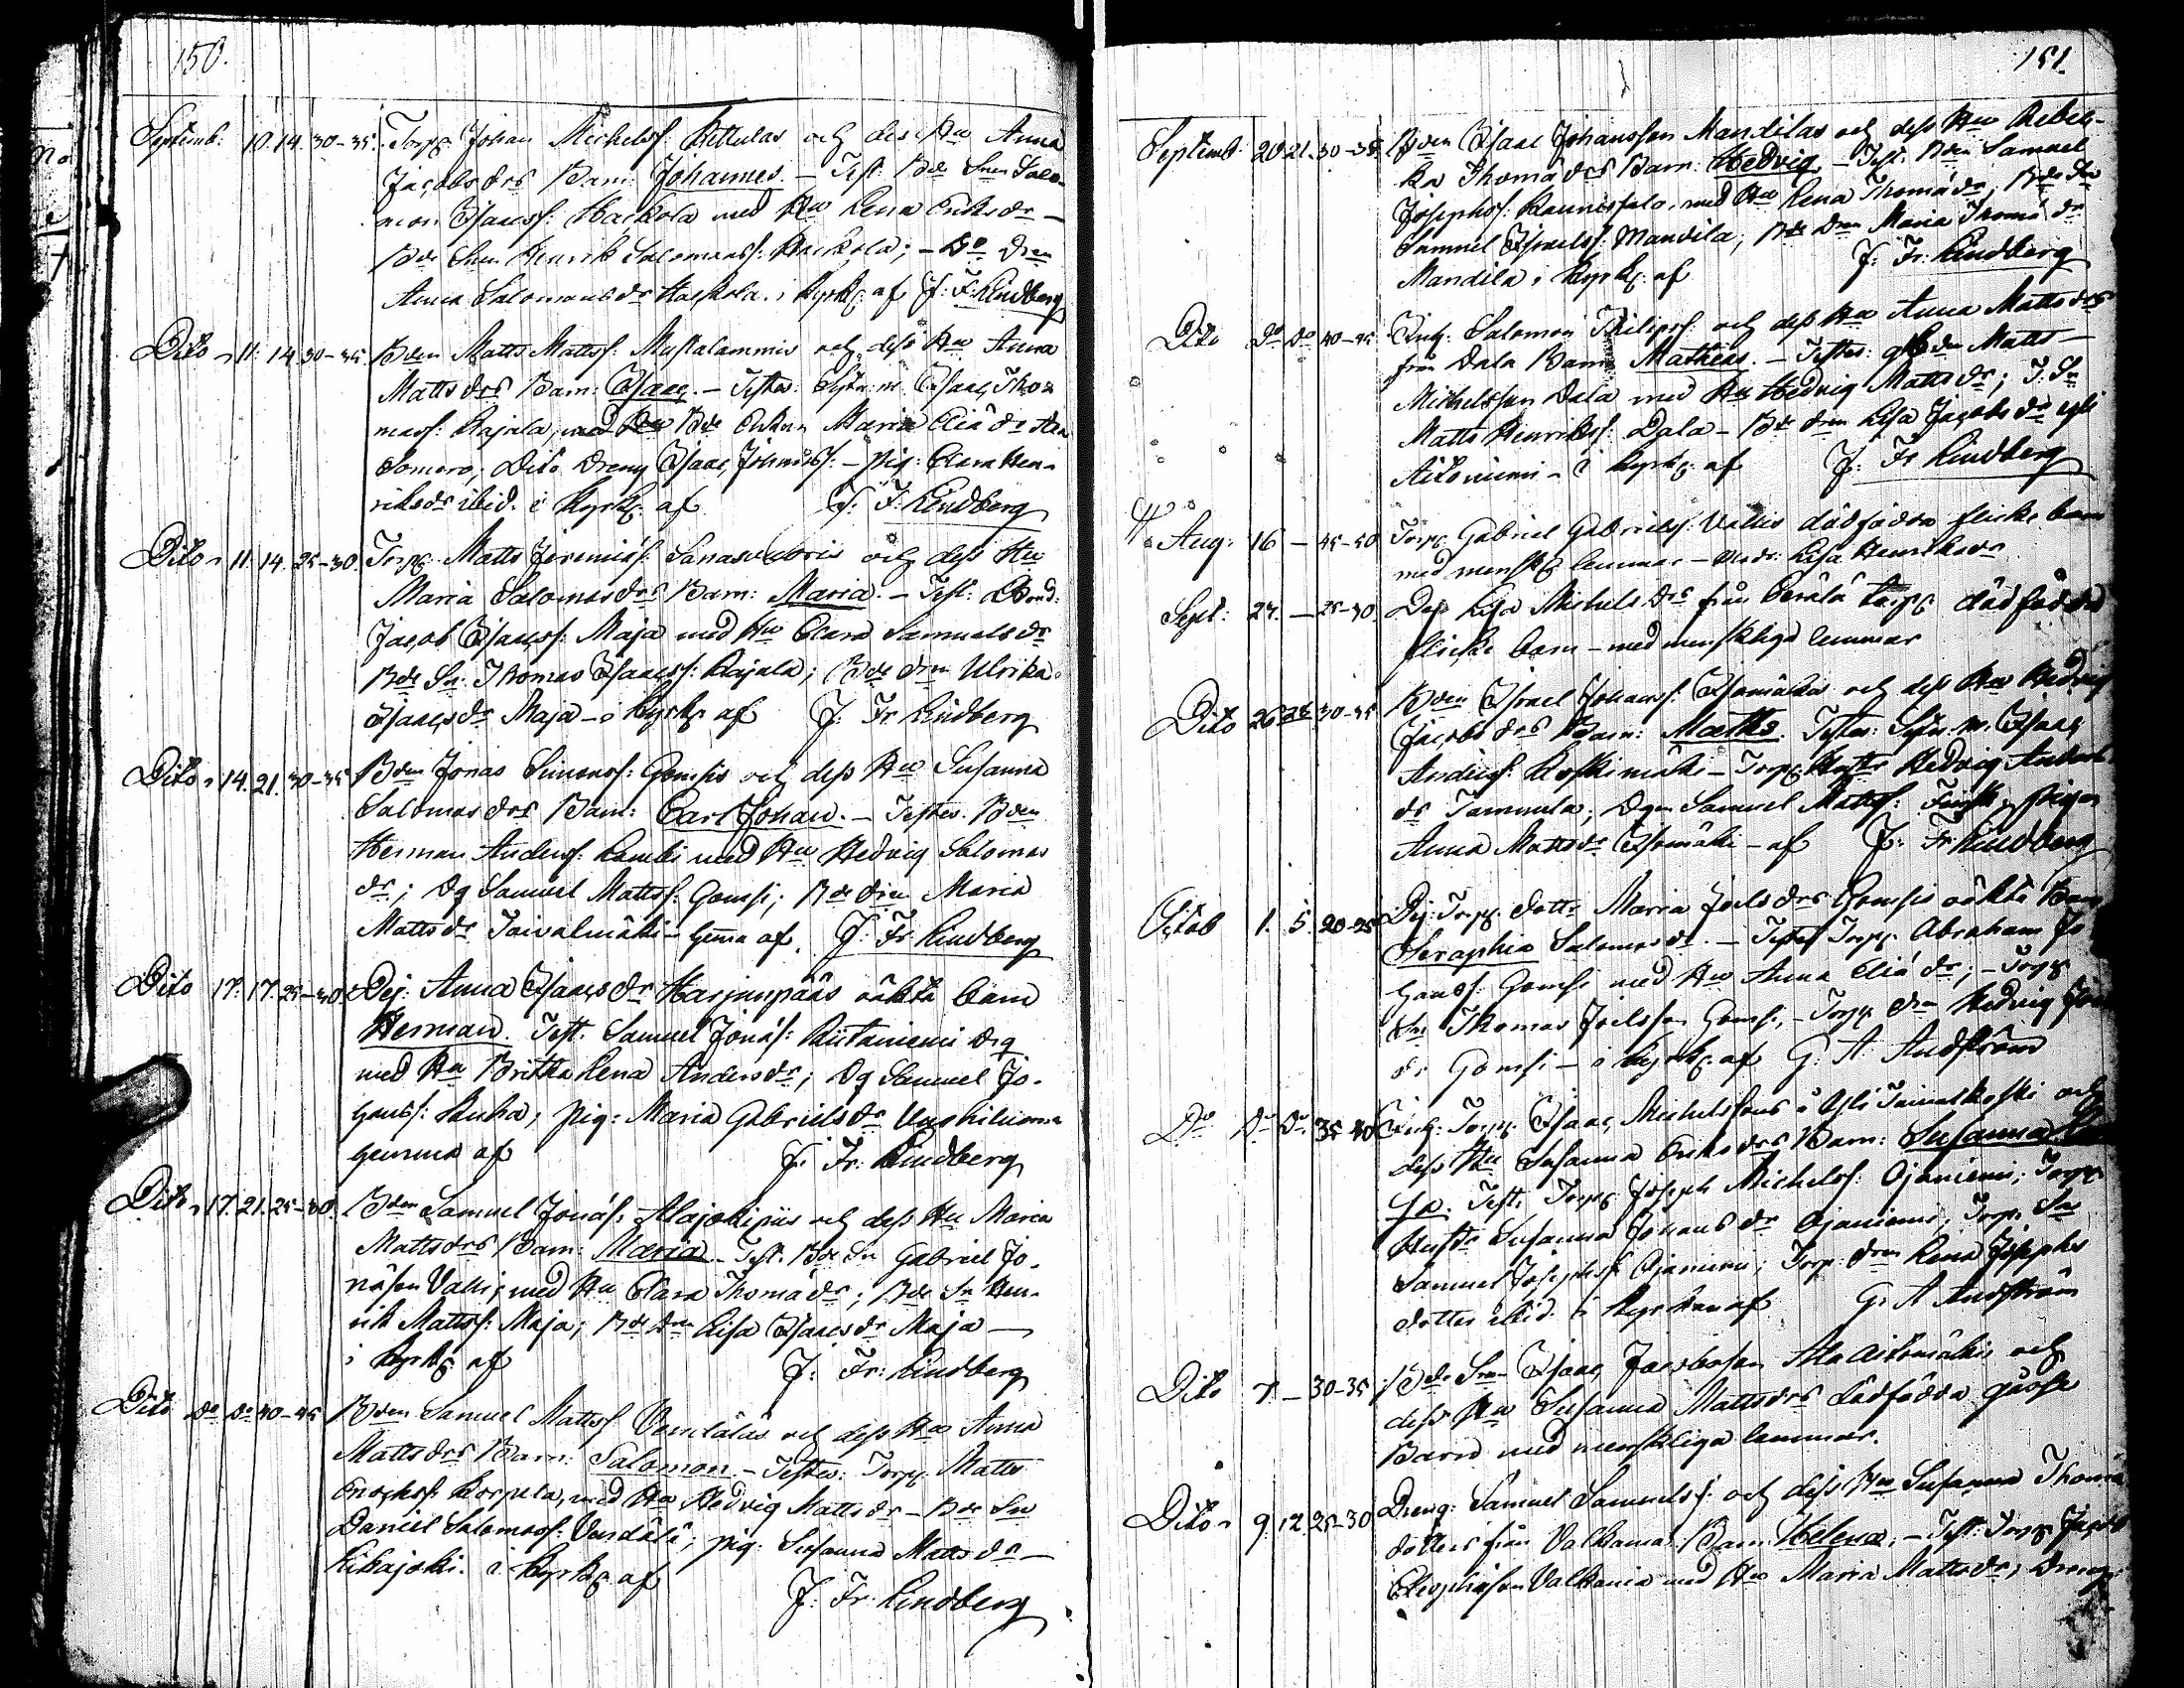 150.
Septemb: 10. 14. 30-35. Torp: Johan Michelsf: Kettulas och dess Hu Anna
Jacobs drs Barn: Johannes. - Test: Bde Snen Salo-
mon Isaacsf: Hackola med Hu Lena Eriks dr -
Bde Snen Henrik Salomonsf: Hackola; - Do Dren
Anna Salomons dr Hackola. i Kyrk: af J: F: Lindberg
Dito 11. 14. 30-35. Bden Matts Mattsf: Mustalammis och dess Hu Anna
Matts drs Barn: Isaac. - Testes: Isaac Tho-
masf: Rajala, med Bde Enkan Maria Eliæ dr
Somero; Dito Dreng Isaac Johansf: - Pig: Clara Hen-
riksdr ibid. i Kyrk: af J: F: Lindberg
Dito 11. 14. 25-30. Torp: Matts Jeremiæf: och dess Hu
Maria Salomos drs Barn: Maria. - Test: Bond:
Jacob Isaacsf: Maja med Hu Clara Samuels dr
Bde Sn: Thomas Isaacsf: Rajala; Bde Dren Ulrika
Isaacs dr Maja - i Kyrk: af J: Fr Lindberg
Dito 14. 21. 30-35 Bden Jonas Simonsf: Gomsis och dess Hu Susanna
Salomos drs Barn: Carl Johan. - Testes: Bden
Herman Andersf: med Hu Hedvig Salomos
dr; Dg Samuel Mattsf: Gomsi; Bde Dren Maria
Matts dr Taivalmäki - hema af. J: Fr Lindberg
Dito 17. 17. 25-30. Pig: Anna Isaacs dr Harjunpääs oäkta barn
Herman. Test. Samuel Jonæf: Riitaniemi Drg
med Hu Britha Lena Anders dr; Dg Samuel Jo-
hansf: Kuha; Pig: Maria Gabriels dr
hemma af J: Fr: Lindberg
Dito 17. 21. 25-30. Bden Samuel Jonæf: Alajokipiis och dess Hu Maria
Matts drs Barn: Maria - Test: Bde Sn Gabriel Jo-
næson Valli; med Hu Clara Thomæ dr; Bde Sn Hen-
rik Mattsf: Maja; Bde Dren Lisa Isaacs dr Maja -
i Kyrk: af J: Fr: Lindberg
Dito Do Do 40-45 Bden Samuel Mattsf: Vendäläs och dess Hu Anna
Matts drs Barn: Salomon - Testes: Torp: Matts
Enochsf: Korpela, med Hu Hedvig Matts dr - Bde Sn
Daniel Salomosf: Vendälä; Pig: Susanna Matts dr -
Kihajoki. i Kyrk: af
J: Fr: Lindberg
151.
Septemb: 20 21. 30-35. Bden Isaac Johansson Mandilas och dess Hu Rebec-
ka Thomæ drs Barn: Hedvig - Test: Bden Samuel
Josephsf: Kaunisfalo, med Hu Lena Thomæ dr; Bde Sn
Samuel Israelsf: Mandila; Bde Dren Maria Thomæ dr
Mandila i Kyrk: af J: Fr: Lindberg
Dito Do Do 40-45 Inh: Salomon Philipsf: och dess Hu Anna Matts drs
från Dala Barn Mathias. - Testes: Bden Matts -
Michelsson Dala med Hu Hedvig Matts dr; T: Sn
Matts Henriksf: Dala - Bde Dren Lisa Jacobs dr
Aitoniemi - i Kyrk: af J: Fr Lindberg
Aug: 16 - 45-50 Torp: Gabriel Gabrielsf: Vallis dödfödda flicke barn
med menskl: lemmar - Modr: Lisa Henriksdr
Sept: 24. - 25-30. Dej: Lisa Michels drs från Perälä torp: dödfödda
flicke barn - med menskliga lemmar
Dito 26 28 30-35 Bden Israel Johansf: Isomäkis och dess Hu Hedvig
Jacobs drs Barn: Matts. Testes: Isaac
Andersf: Koskimäki - Torp: Hedvig Anders
dr Tammela; Dgen Samuel Mattsf: Pigan
Anna Matts dr Isomäki - af J: Fr Lindberg
Octob 1. 5. 20-25 Dej: Torp: dottr Maria Joels drs Gomsis oäkta Barn
Seraphia Salomos dr. - Testes Torp: Abraham Jo-
hansf: Gomsi med Hu Anna Eliæ dr; - Torp:
Sn Thomas Joelsson Gomsi; - Torp: Dn Hedvig
dr Gomsi - i Kyrk: af G: A: Andström
Do Do Do. 35-40 Inh: Torp: Isaac Michelssons å Yli Tainuskoski och
dess Hu Susanna Eriks drs Barn: Susanna
Test: Torp: Joseph Michelsf: Ojaniemi; Torp:
Hustr Susanna Johans dr Ojaniemi; Torp. Sn
Samuel Josephsf: Ojaniemi; Torp: Dren Lena Josephs
dotter ibid. i Kyrkan af G: A Andström
Dito 7 - 30-35 Bde Snen Isaac Jacobsson Ala Aitomäkis och
dess Hu Susanna Matts drs dödfödda gosse
Barn med menskliga lemmar.
Dito 9. 12 25-30 Dreng: Samuel Samuelsf: och dess Hu Susanna Thomæ
dotters från Valkama Barn: Helena. - Test: Torp: Jacob
Valkama med Hu Maria Matts dr; Dreng: